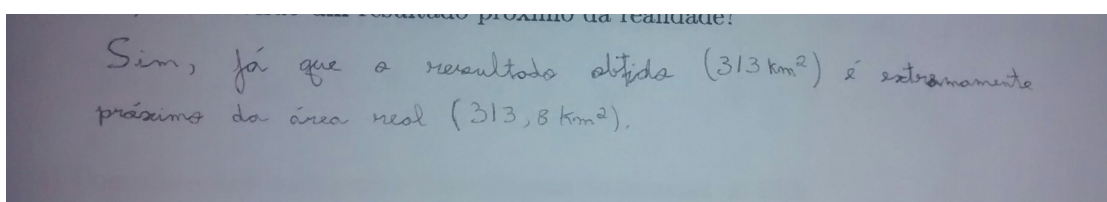 um resultado próximo da realidade?
Sim, já que o resultado obtido (313 km²) é extramamente
próximo da área real (313,8 km²).